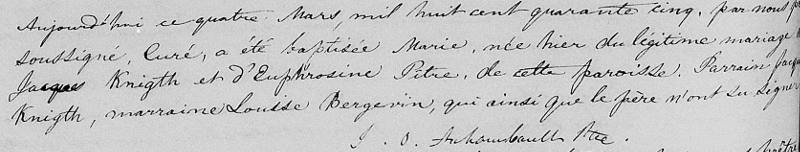 Aujourd'hui ce quatre Mars, mil huit cent quarante cinq, par nous
soussigné, Curé, a été baptisée Marie, née hier du légitime mariage
Jacques Knigth et d'Euphrosine Pitre, de cette paroisse. Parrain Jacques
Knigth, marraine Louise Bergevin, qui ainsi que le père n'ont su signer
J. O. Archambault Ptre.